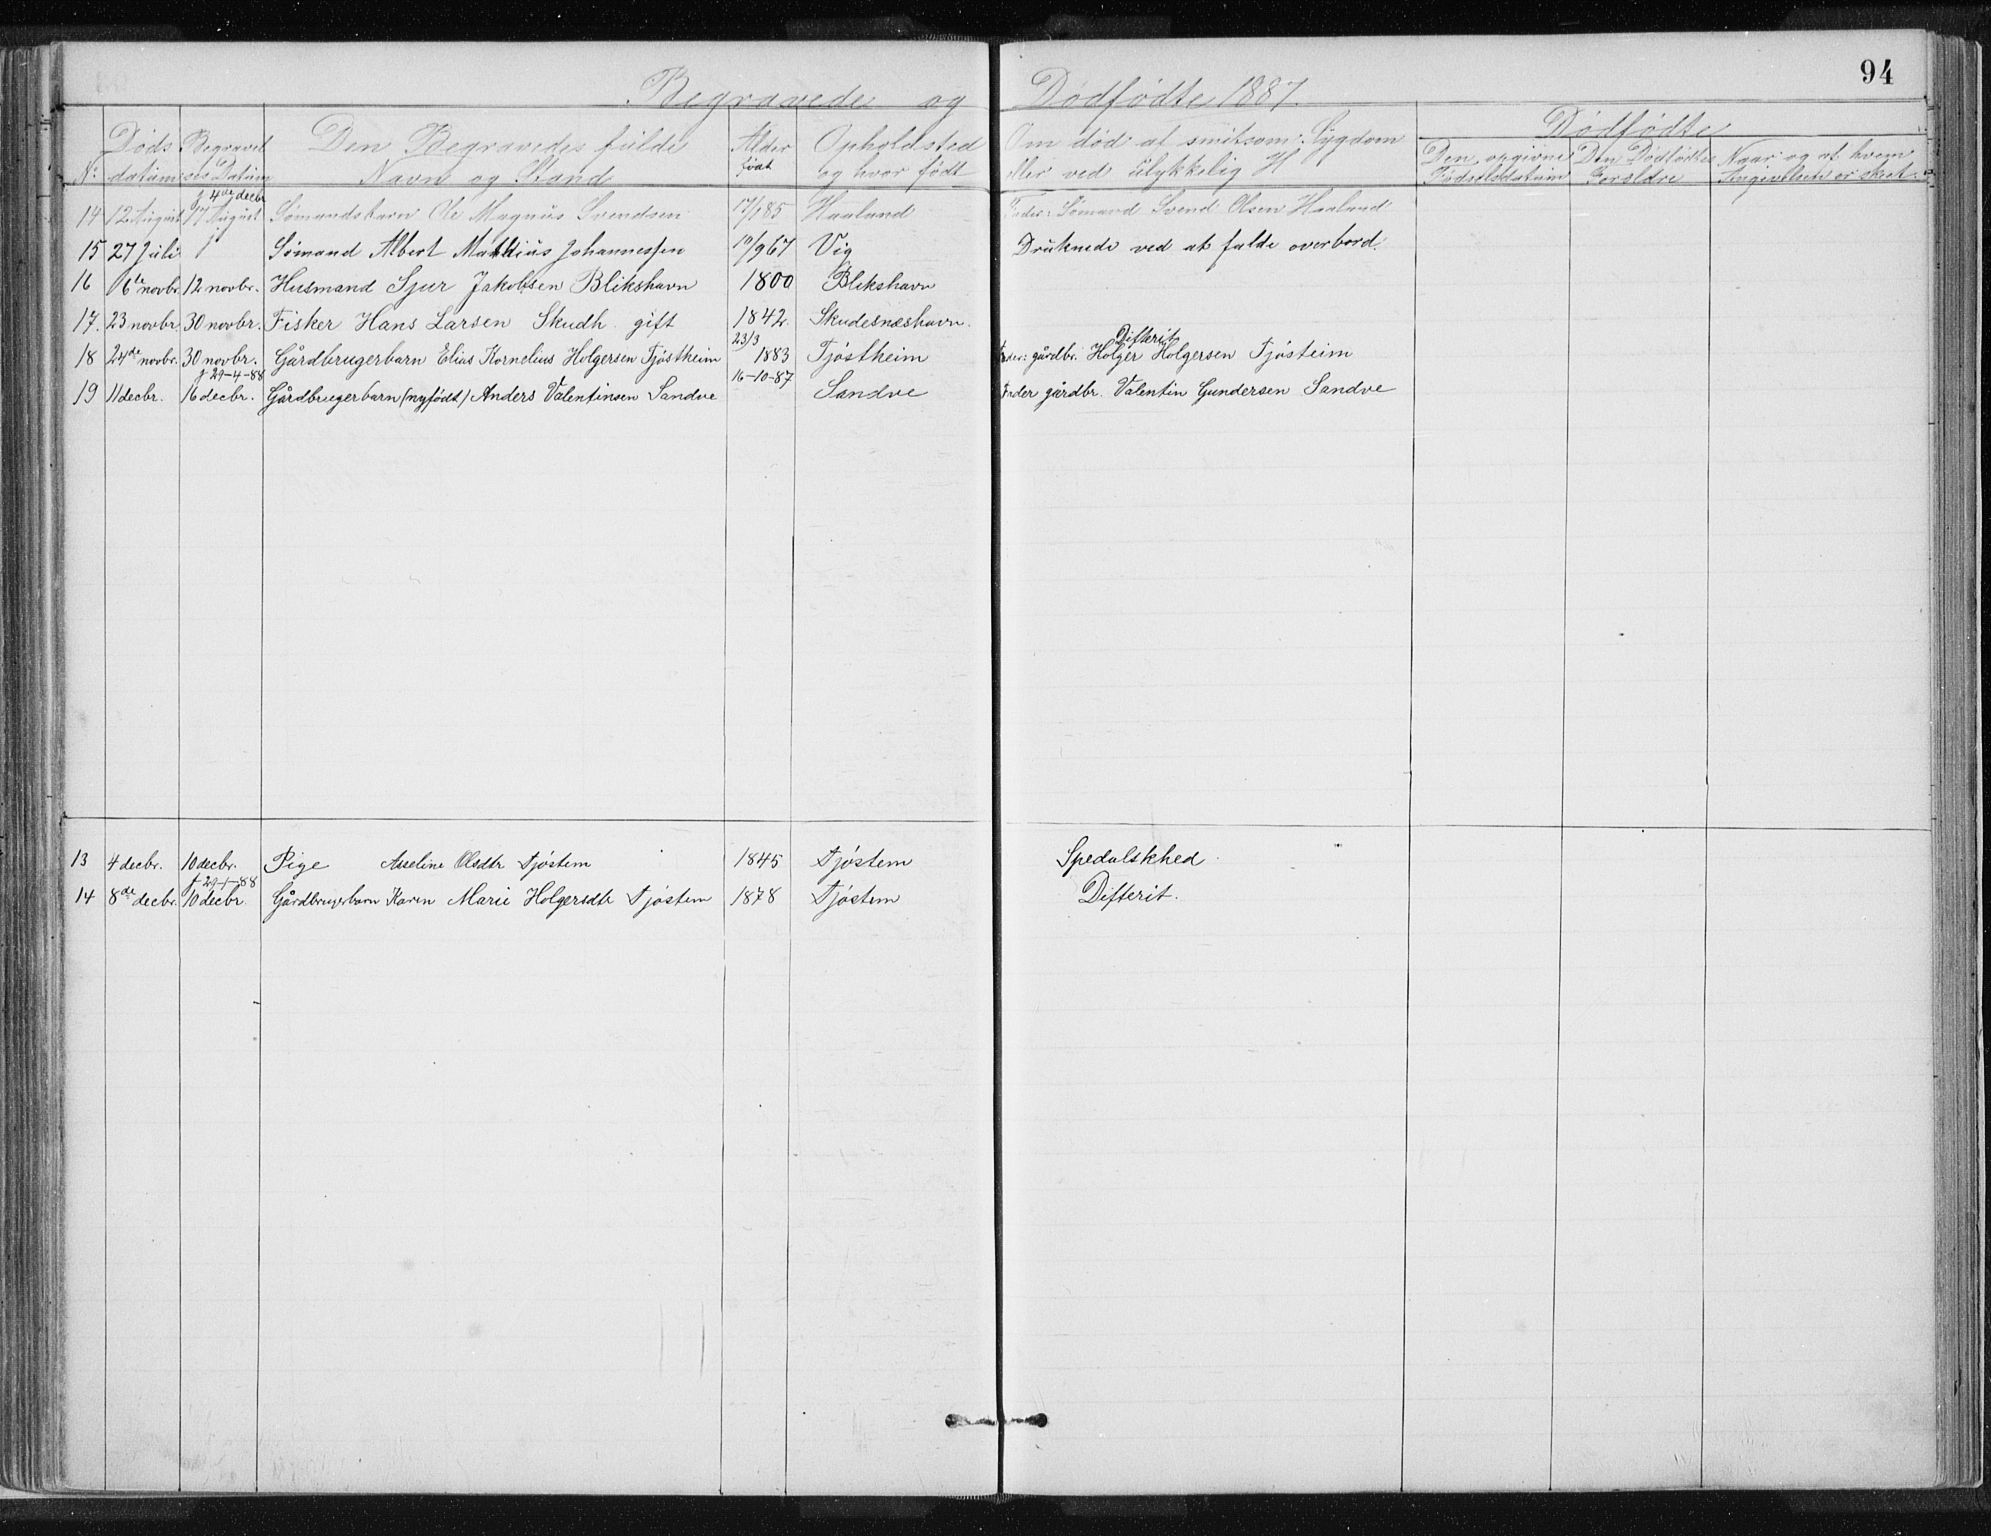 94
Begravede og Dødfødte 1887.
Døds Begravel Den Begravedes fulde Alder Opholdsted Om død af smitsom Sygdom Dødfødte
No datum ses Datum Navn og Stand født og hvor født eller ved ulykkelig H Den opgivne Den Dødfødtes Naar og af hvem
Fødselsdatum Forældre Angivelsen er skeet
j 4de decbr
14 12 August 17 August Sømandsbarn Ole Magnus Svendsen 17/185 Haaland Fader: Sømand Svend Olsen Haaland
15 27 Juli Sømand Albert Mathius Johannessen 19/967 Vig Druknede ved at falde overbord.
16 6te novbr. 12 novbr. Husmand Sjur Jakobsen Blikshavn 1800 Blikshavn
17. 23 novbr. 30 novbr. Fisker Hans Larsen Skudh. gift 1842. Skudesnæshavn.
23/3 Difterit
18 24de novbr. 30 novbr. Gårdbrugerbarn Elias Kornelius Holgersen Tjøstheim 1883 Tjøstheim Fader: gårdbr. Holger Holgersen Tjøsteim
j 29-4-88 16-10-87
19 11 decbr. 16 decbr. Gårdbrugerbarn (nyfødt) Anders Valentinsen Sandve Sandve Fader gårdbr. Valentin Gundersen Sandve
13 4 decbr. 10 decbr. Pige Asseline Olsdtr Tjöstem 1845 Tjöstem Spedalskhed.
j 29-1-88
14 8de decbr. 10 decbr Gårdbrugerbarn Karen Marie Holgersdtr Tjöstem 1878 Tjöstem Difterit.